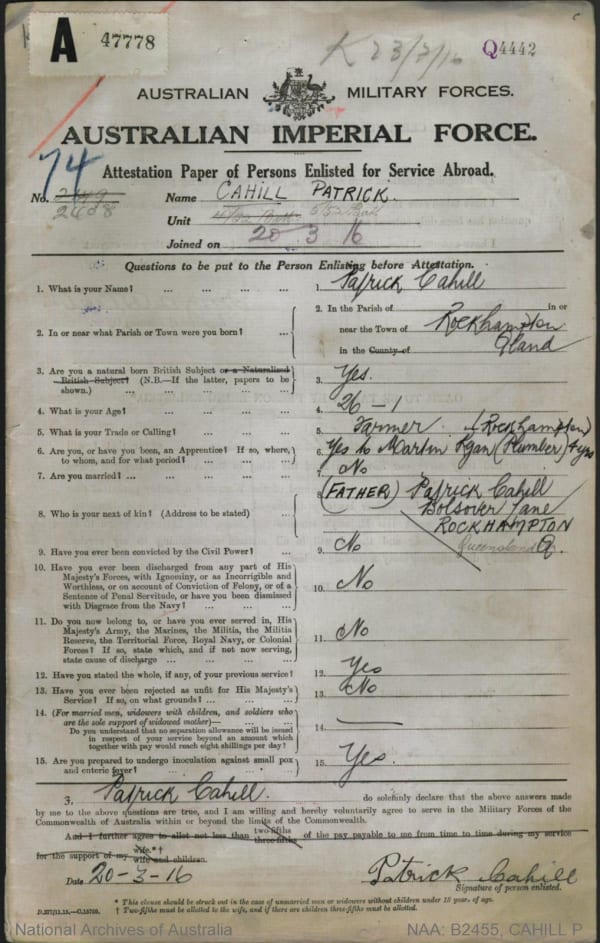 A 47778
K 23/7/16
Q4442
AUSTRALIAN MILITARY FORCES.
AUSTRALIAN IMPERIAL FORCE.
74
Attestation Paper of Persons Enlisted for Service Abroad.
No. 2449 Name CAHILL PATRICK.
2438 Unit
Joined on 20 3 16
Questions to be put to the Person Enlisting before Attestation.
1. What is your Name? ... ... ... ... 1. Patrick Cahill
2. In or near what Parish or Town were you born? ... 2. In the Parish of in or
near the Town of Rockhampton
in the County of Qland
3. Are you a natural born British Subject or a Naturalized
British Subject? (N.B.—If the latter, papers to be
shown.) ... ... ... ... 3. Yes.
4. What is your Age? ... ... ... ... 4. 26-1
5. What is your Trade or Calling? ... ... ... 5. Farmer. (Rockhampton)
6. Are you, or have you been, an Apprentice? If so, where,
to whom, and for what period? ... ... ... 6. Yes to Martin Ryan (Plumber) 4 yrs
7. Are you married? ... ... ... ... 7. No
8. Who is your next of kin? (Address to be stated) ... 8. (FATHER) Patrick Cahill
Bolsover Lane
ROCKHAMPTON
Queensland Q.
9. Have you ever been convicted by the Civil Power? ... 9. No
10. Have you ever been discharged from any part of His
Majesty's Forces, with Ignominy, or as Incorrigible and
Worthless, or on account of Conviction of Felony, or of a
Sentence of Penal Servitude, or have you been dismissed
with Disgrace from the Navy? ... ... ... 10. No
11. Do you now belong to, or have you ever served in, His
Majesty's Army, the Marines, the Militia, the Militia
Reserve, the Territorial Force, Royal Navy, or Colonial
Forces? If so, state which, and if not now serving,
state cause of discharge ... ... ... ... 11. No
12. Have you stated the whole, if any, of your previous service? 12. Yes
13. Have you ever been rejected as unfit for His Majesty's
Service? If so, on what grounds? ... ... ... 13. No
14. (For married men, widowers with children, and soldiers who
are the sole support of widowed mother)— ... ...
Do you understand that no separation allowance will be issued
in respect of your service beyond an amount which
together with pay would reach eight shillings per day? 14. —
15. Are you prepared to undergo inoculation against small pox
and enteric fever? ... ... ... ... 15. Yes.
I, Patrick Cahill. do solemnly declare that the above answers made
by me to the above questions are true, and I am willing and hereby voluntarily agree to serve in the Military Forces of the
Commonwealth of Australia within or beyond the limits of the Commonwealth.
And I further agree to allot not less than two-fifths three-fifths of the pay payable to me from time to time during my service
for the support of my wife.*† wife and children.
Date 20-3-16 Patrick Cahill
Signature of person enlisted.
* This clause should be struck out in the case of unmarried men or widowers without children under 18 years of age.
† Two-fifths must be allotted to the wife, and if there are children three-fifths must be allotted.
National Archives of Australia NAA: B2455, CAHILL P